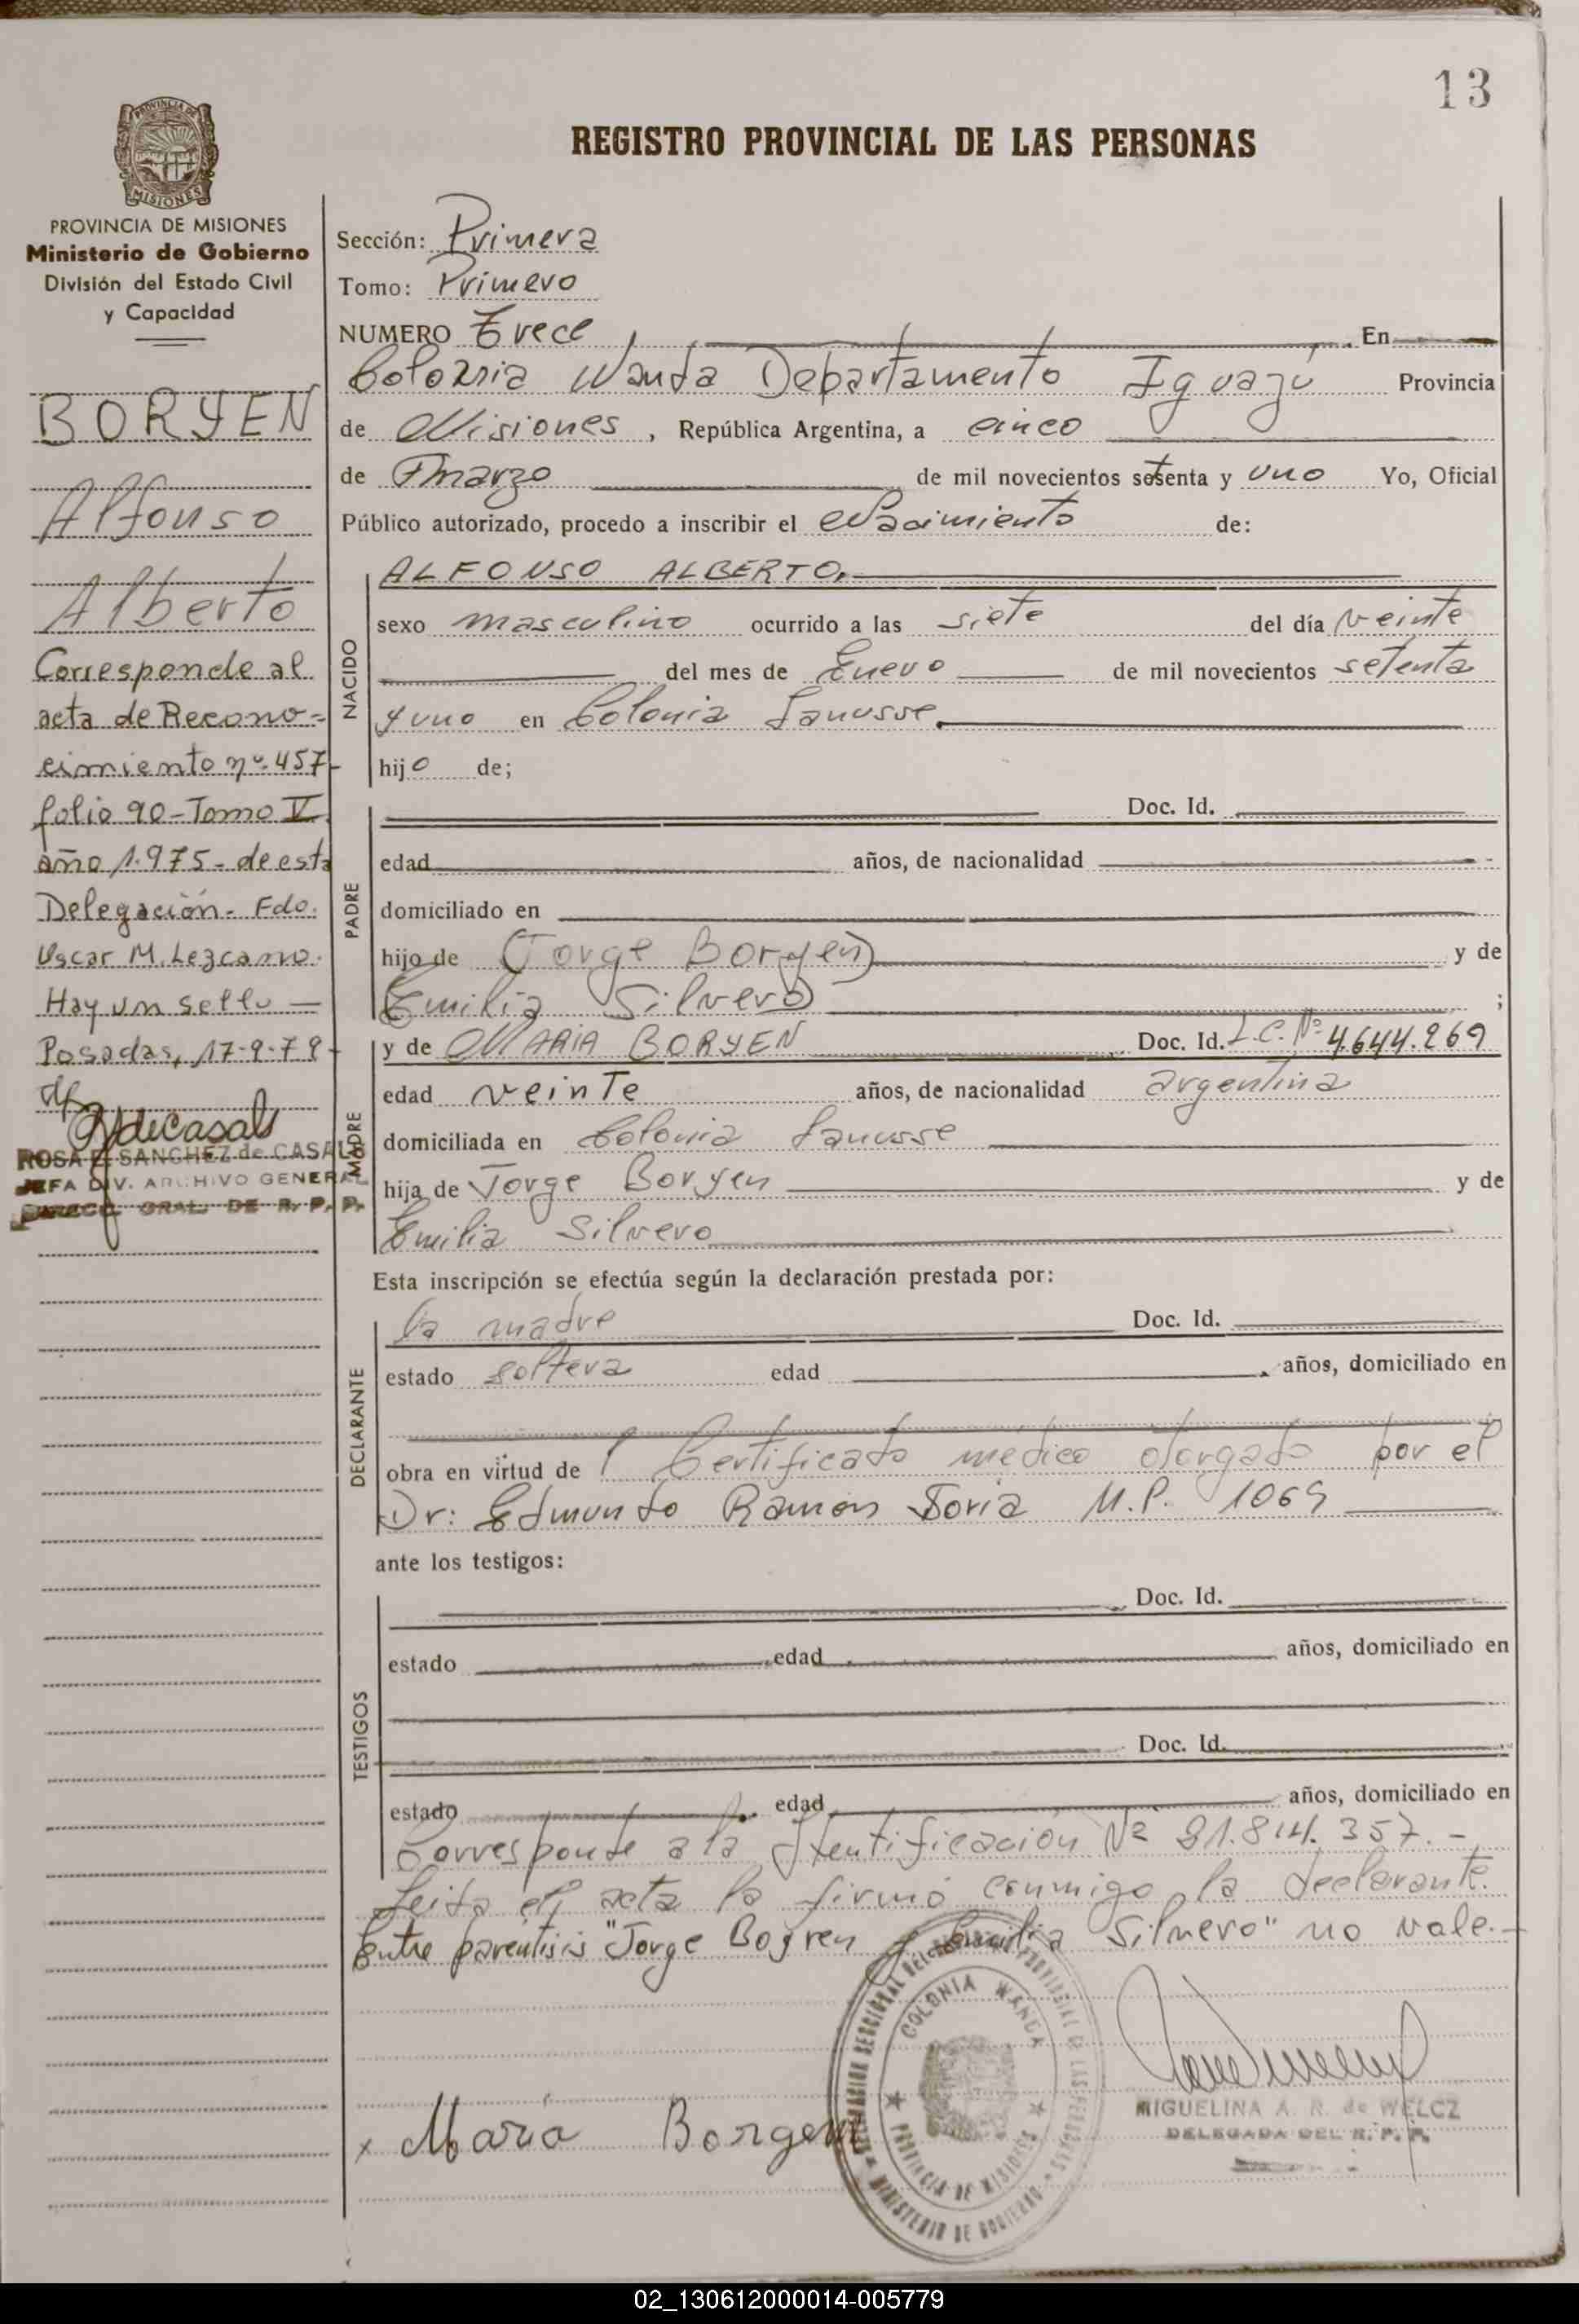 13
REGISTRO PROVINCIAL DE LAS PERSONAS
PROVINCIA DE
MISIONES
PROVINCIA DE MISIONES
Ministerio de Gobierno
División del Estado Civil
y Capacidad
BORYEN
Alfonso
Alberto
Corresponde al
acta de Recono-
cimiento nº 457-
folio 90 - Tomo V.
año 1.975 - de esta
Delegación - Fdo.
Oscar M. Lezcano.
Hay un sello —
Posadas, 17-9-79-
ROSA E. SANCHEZ de CASALS
JEFA DIV. ARCHIVO GENERAL
GRAL. DE R. P. P.
Sección: Primera
Tomo: Primero
NUMERO Trece, En
Colonia Wanda Departamento Iguazú Provincia
de Misiones, República Argentina, a cinco
de marzo de mil novecientos setenta y uno Yo, Oficial
Público autorizado, procedo a inscribir el Nacimiento de:
NACIDO
ALFONSO ALBERTO.
sexo masculino ocurrido a las siete del día veinte
del mes de Enero de mil novecientos setenta
y uno en Colonia Lanusse.
hijo de;
PADRE
Doc. Id.
edad años, de nacionalidad
domiciliado en
hijo de (Jorge Boryen y de
Emilia Silvero) ;
MADRE
y de MARIA BORYEN Doc. Id. L.C. Nº 4.644.269
edad veinte años, de nacionalidad argentina
domiciliada en Colonia Lanusse
hija de Jorge Boryen y de
Emilia Silvero
Esta inscripción se efectúa según la declaración prestada por:
DECLARANTE
la madre Doc. Id.
estado soltera edad años, domiciliado en
obra en virtud de l Certificado médico otorgado por el
Dr: Edmundo Ramón Soria M.P. 1069
ante los testigos:
TESTIGOS
Doc. Id.
estado edad años, domiciliado en
Doc. Id.
estado edad años, domiciliado en
Corresponde a la Identificación Nº 21.814.357.-
Leida el acta la firmó conmigo la declarante.
Entre paréntisis "Jorge Boyren y Emilia Silnero" no vale.-
COLONIA WANDA
PROVINCIA DE MISIONES
MINISTERIO DE GOBIERNO
x Maria Borgen
MIGUELINA A. R. de WELCZ
DELEGADA DEL R. P. P.
02_130612000014-005779